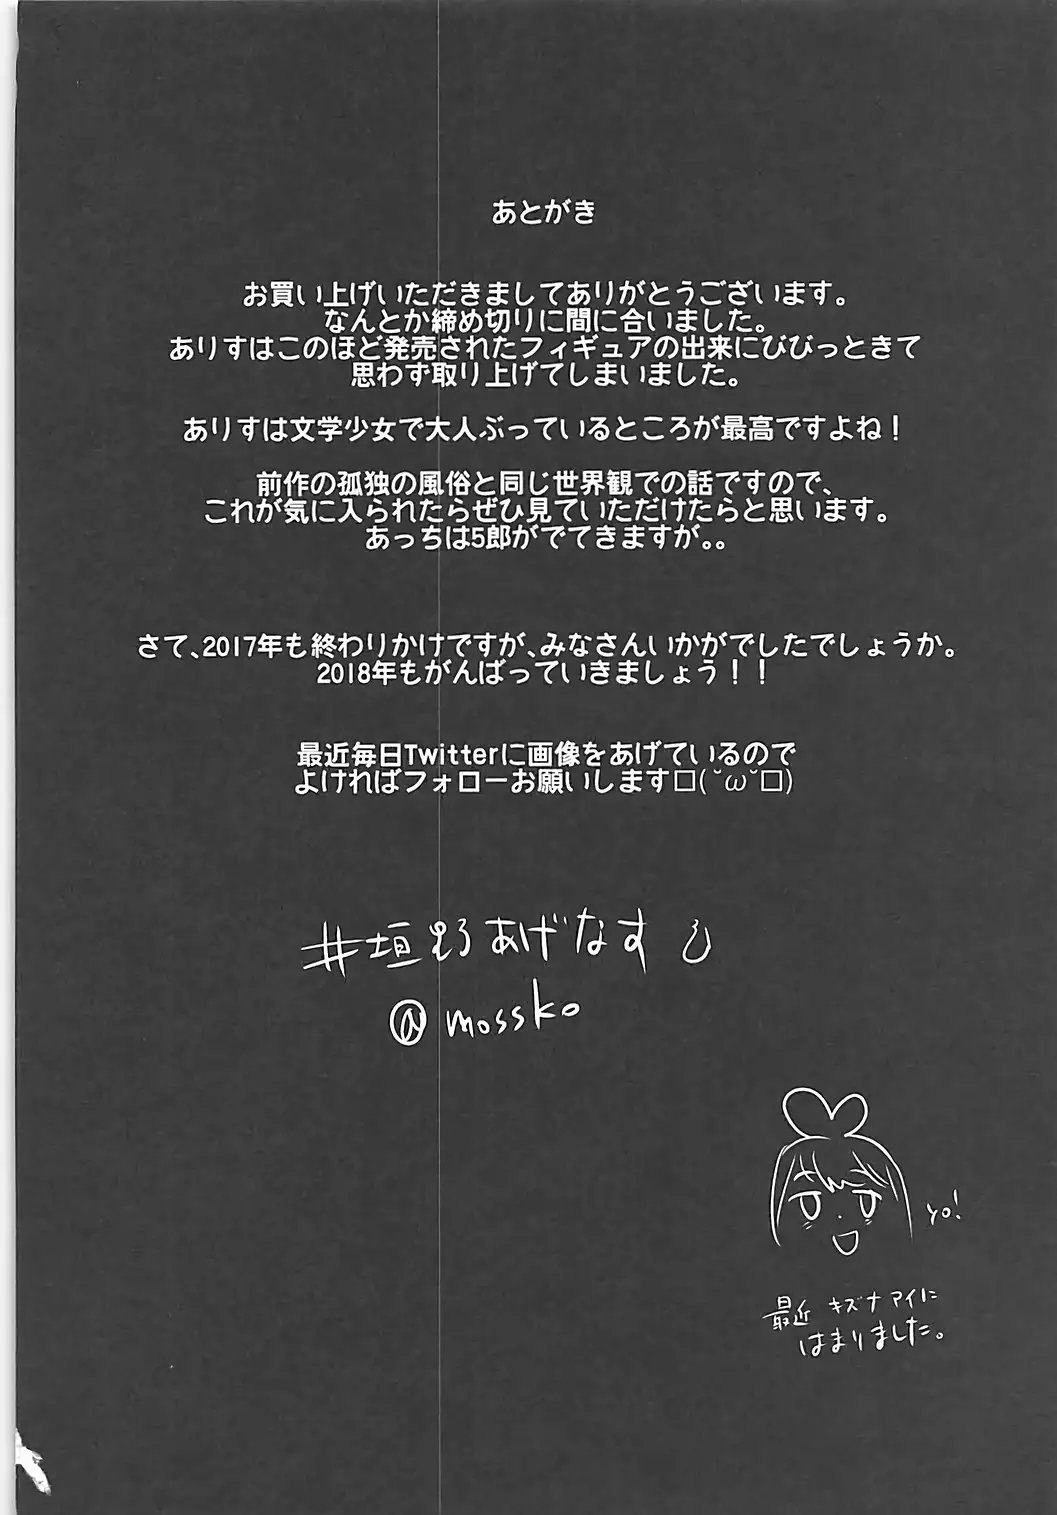 あとがき
お買い上げいただきましてありがとうございます。
なんとか締め切りに間に合いました。
ありすはこのほど発売されたフィギュアの出来にびびっときて
思わず取り上げてしまいました。
ありすは文学少女で大人ぶっているところが最高ですよね！
前作の孤独の風俗と同じ世界観での話ですので、
これが気に入られたらぜひ見ていただけたらと思います。
あっちは5郎がでてきますが。。
さて、2017年も終わりかけですが、みなさんいかがでしたでしょうか。
2018年もがんばっていきましょう！！
最近毎日Twitterに画像をあげているので
よければフォローお願いします□(˘ω˘□)
井垣野あげなす
@mossko
yo!
最近 キズナアイに
はまりました。